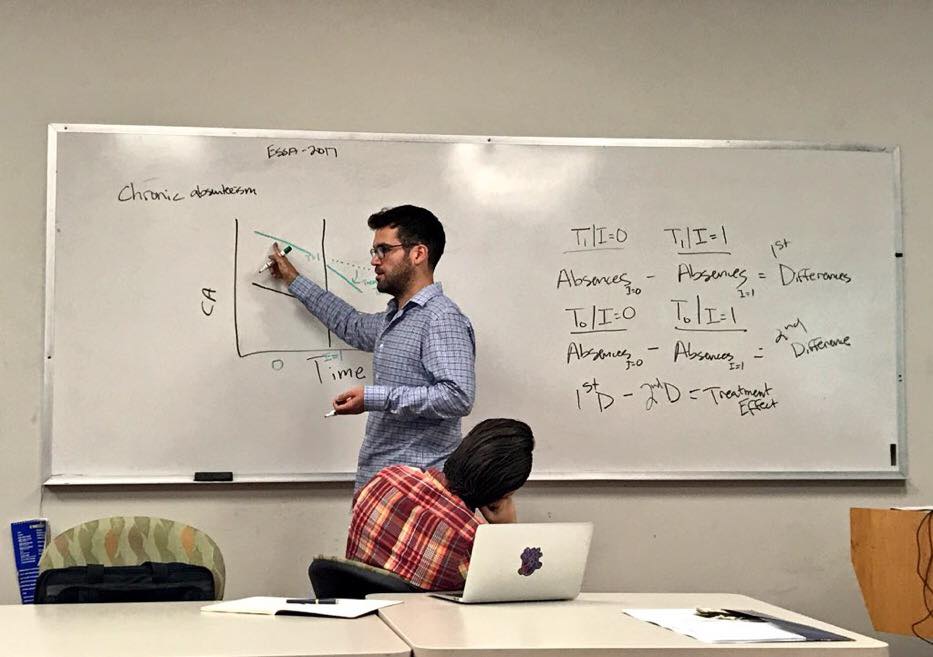 ESSA-2017
Chronic absenteeism
CA
T=1
0
I=1
Time
T₁|I=0 T₁|I=1
Absences I=0 - Absences I=1 = 1st Differences
T₀|I=0 T₀|I=1
Absences I=0 - Absences I=1 = 2nd Difference
1st D - 2nd D = Treatment
Effect